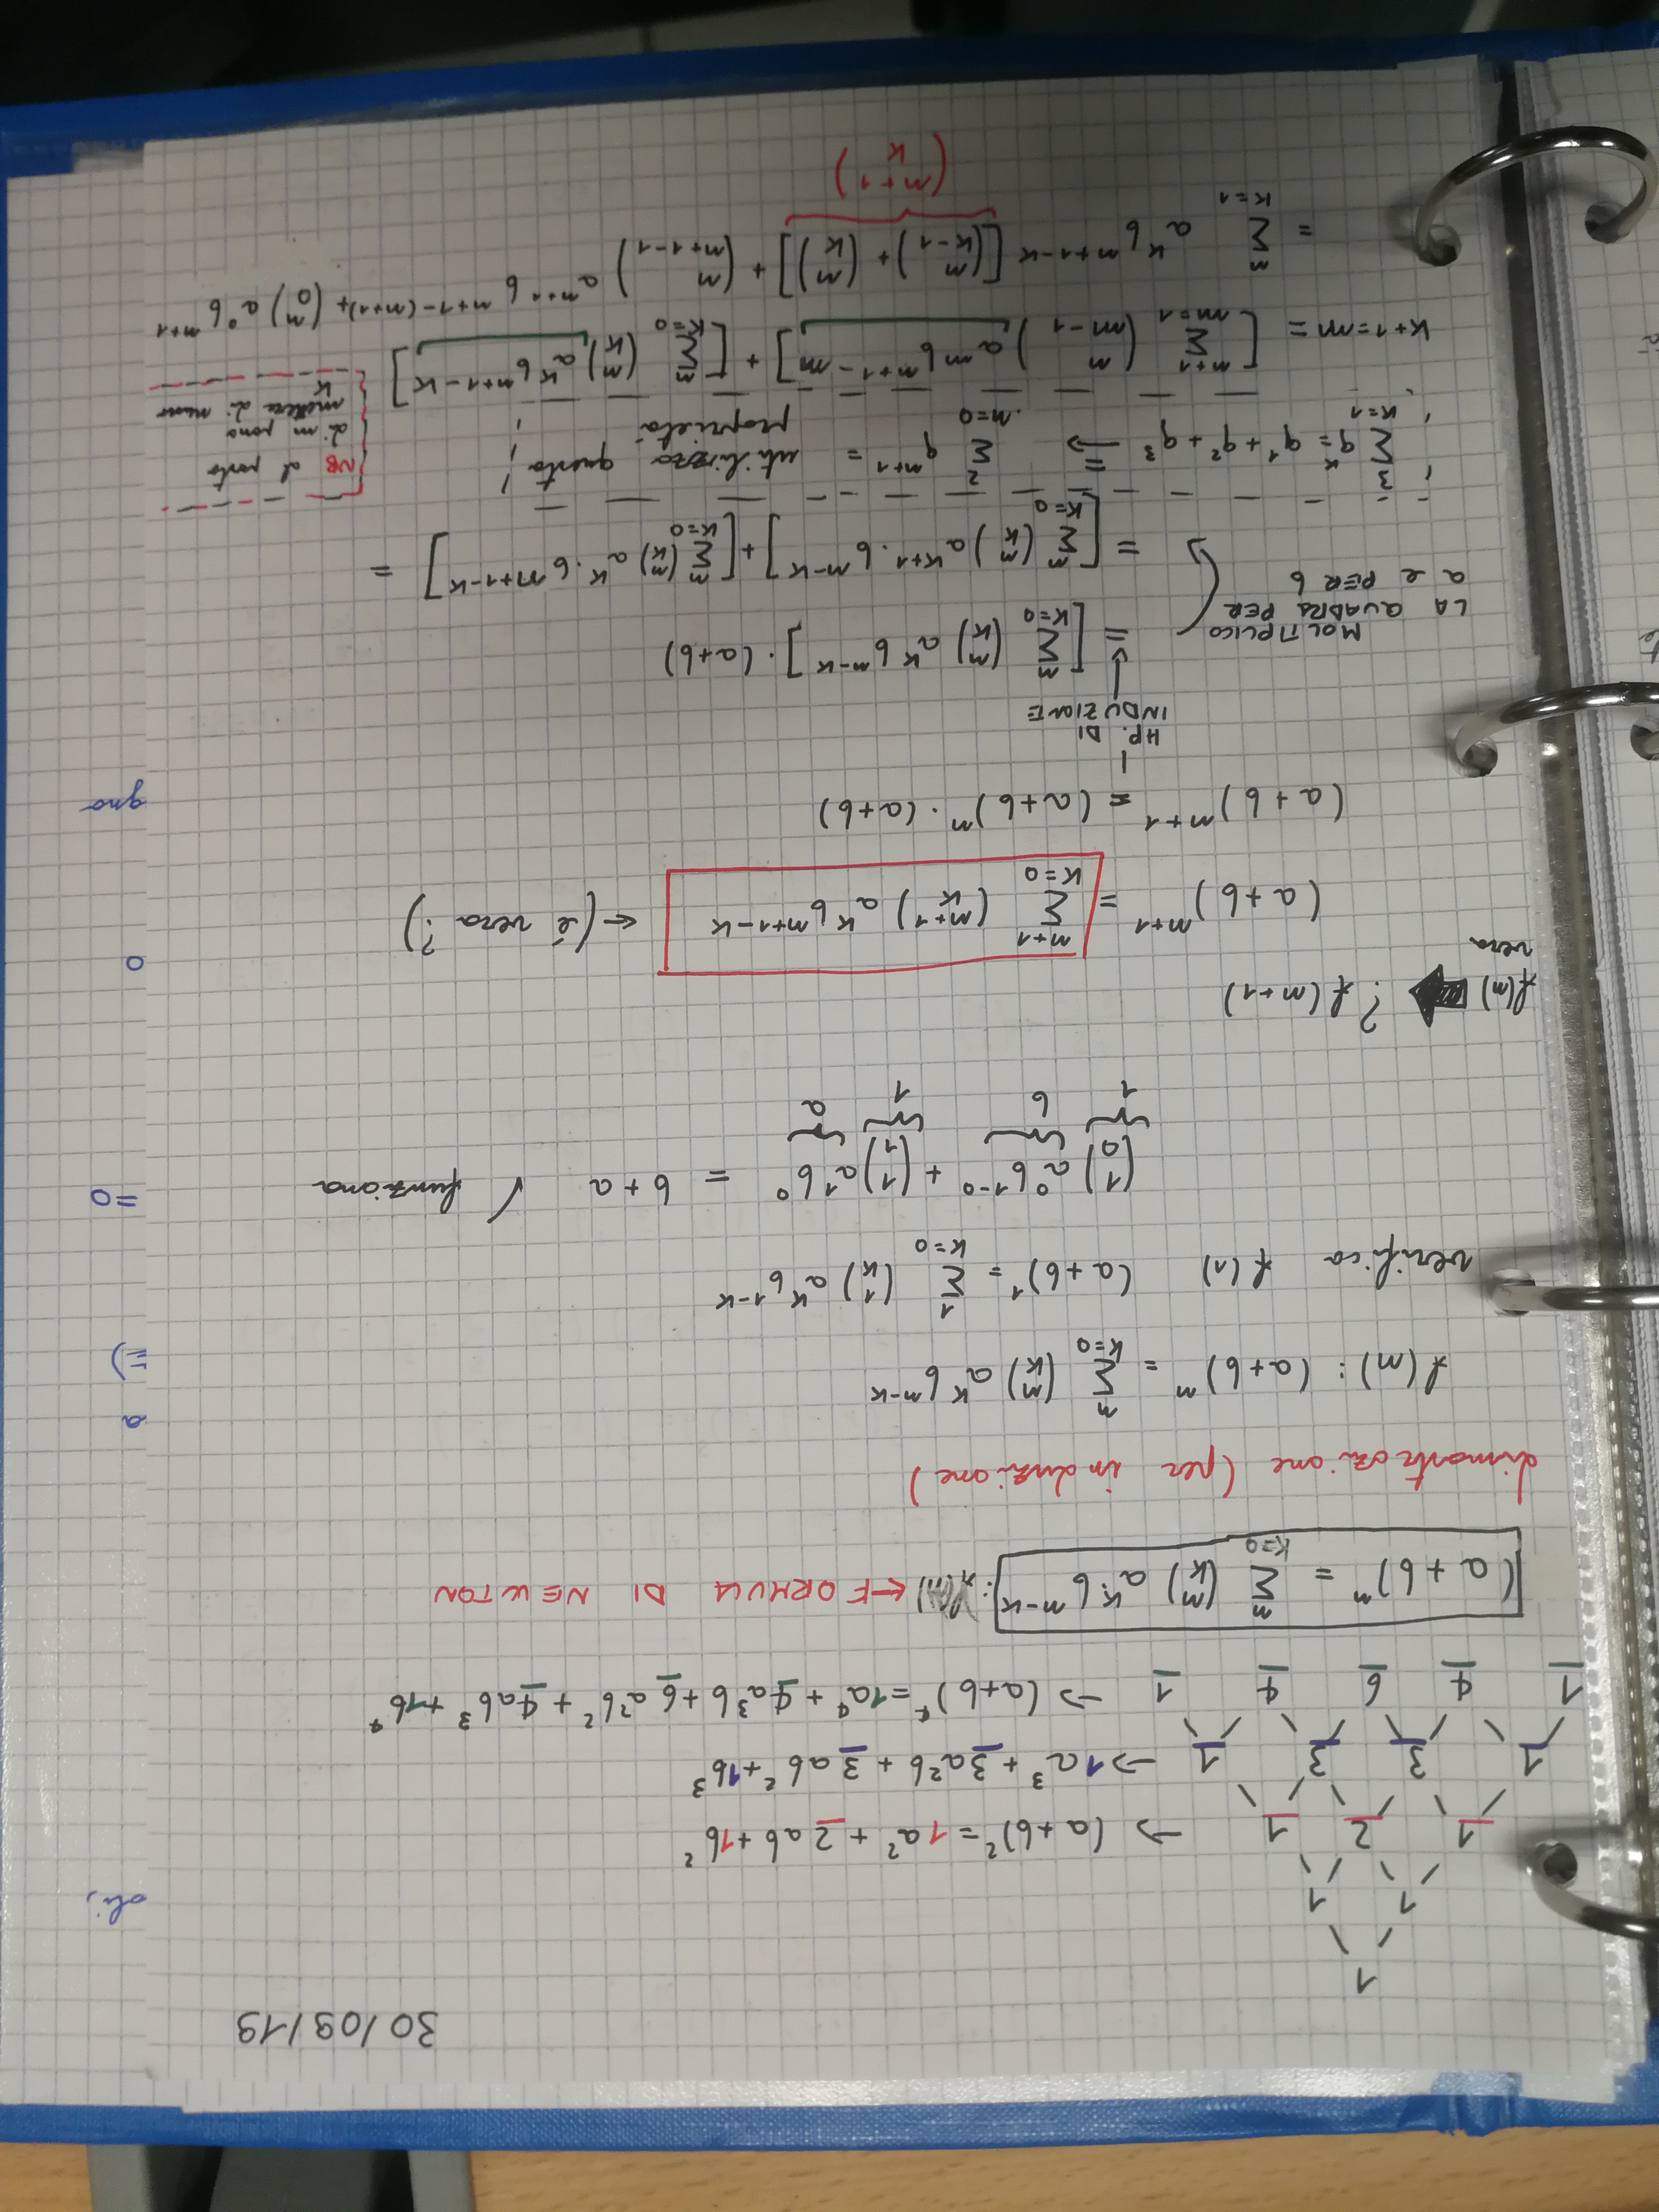 30/09/19
1
1 1
1 2 1 → (a+b)² = 1a² + 2ab + 1b²
1 3 3 1 → 1a³ + 3a²b + 3ab² + 1b³
1 4 6 4 1 → (a+b)⁴ = 1a⁴ + 4a³b + 6a²b² + 4ab³ + 1b⁴
(a+b)^n = Σ_{k=0}^{n} (n k) a^k · b^{n-k} : ← FORMULA DI NEWTON
dimostrazione (per induzione)
f(n): (a+b)^n = Σ_{k=0}^{n} (n k) a^k b^{n-k}
verifica f(1) (a+b)^1 = Σ_{k=0}^{1} (1 k) a^k b^{1-k}
(1 0) a^0 b^{1-0} + (1 1) a^1 b^0 = b + a ✓ funziona
1 b 1 a
f(n) ➡ ? f(n+1)
vera
(a+b)^{n+1} = Σ_{k=0}^{n+1} (n+1 k) a^k b^{n+1-k} ← (é vera ?)
(a+b)^{n+1} = (a+b)^n · (a+b)
HP. DI
INDUZIONE
= [Σ_{k=0}^{n} (n k) a^k b^{n-k}] · (a+b)
MOLTIPLICO
LA QUADRA PER
a e PER b
= [Σ_{k=0}^{n} (n k) a^{k+1} · b^{n-k}] + [Σ_{k=0}^{n} (n k) a^k · b^{n+1-k}] =
Σ_{k=1}^{3} q^k = q^1 + q^2 + q^3 ⇒ Σ_{n=0}^{2} q^{n+1} = utilizzo questa
proprietà
NB al posto
di m posso
mettere di nuovo
k
k+1=m = [Σ_{m=1}^{n+1} (n m-1) a^m b^{n+1-m}] + [Σ_{k=0}^{n} (n k) a^k b^{n+1-k}]
= Σ_{k=1}^{n} a^k b^{n+1-k} [(n k-1) + (n k)] + (n n+1-1) a^{n+1} b^{n+1-(n+1)} + (n 0) a^0 b^{n+1}
(n+1 k)
oli,
a
=)
=0
o
gno